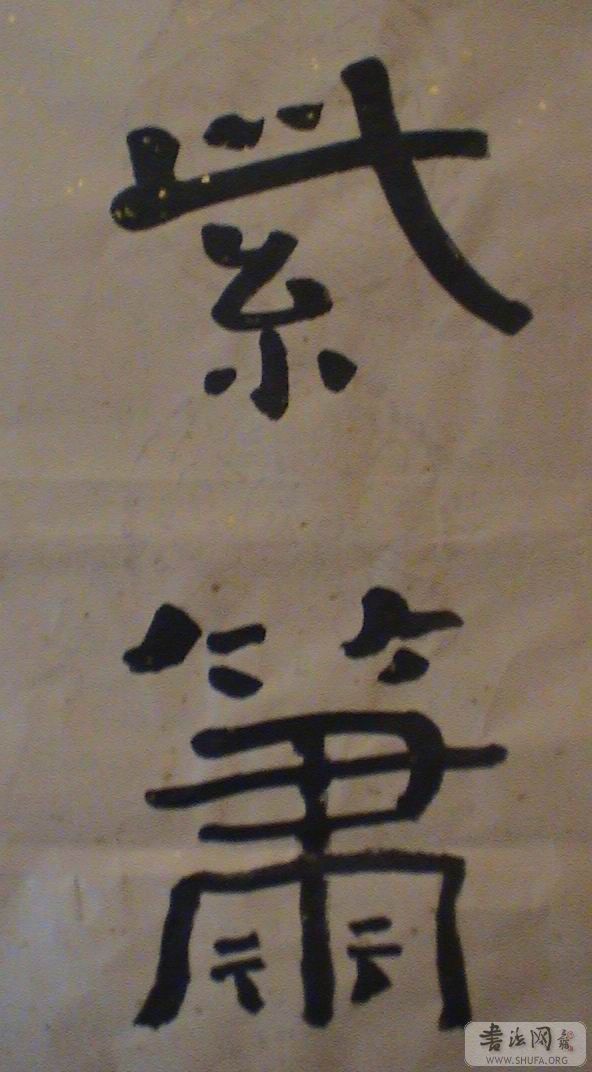 紫
簫
書法网
WWW.SHUFA.ORG